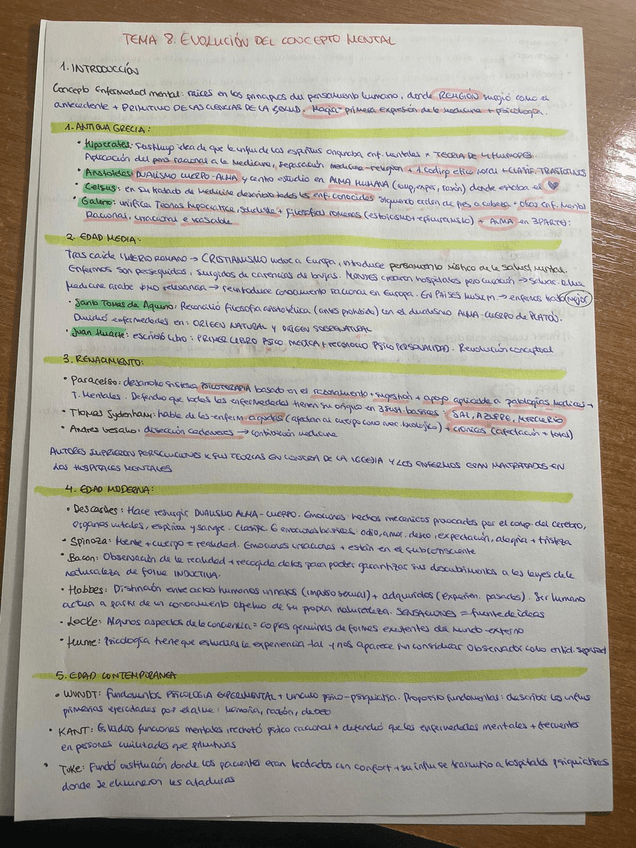 TEMA 8. EVOLUCIÓN DEL CONCEPTO MENTAL
1. INTRODUCCIÓN
Concepto Enfermedad mental: raíces en los principios del pensamiento humano, donde RELIGIÓN surgió como el
antecedente + PRIMITIVO DE LAS CIENCIAS DE LA SALUD. Magia = primera expresión de la medicina + psicología.
1. ANTIGUA GRECIA:
• Hipócrates: Sustituyó idea de que la influ de los espíritus originaba enf. mentales x TEORÍA DE 4 HUMORES
Aplicación del pens racional a la Medicina, separación medicina-religión + 1 código ético TRASTORNOS
• Aristóteles: DUALISMO CUERPO-ALMA y centró estudio en ALMA HUMANA razón) donde estaba
• Celsus: en su tratado de medicina describió todas las enf. conocidas siguiendo orden de pies a cabeza + otra enf. mental
• Galeno: unifica Teorías hipocrática, + Filosofías romanas (estoicismo + epicureísmo) → ALMA en 3 PARTES:
Racional, irracional e irascible
2. EDAD MEDIA:
Tras caída IMPERIO ROMANO → CRISTIANISMO en Europa, introduce pensamiento místico en la salud mental.
Enfermos son perseguidos, surgidos de carencias de brujas. MONJES crearon hospitales → Salvar alma
Medicina árabe + relevancia → reintroduce conocimiento racional en Europa. En PAÍSES MUSLIM → enfermos trato MEJOR
• Santo Tomas de Aquino: Reconcilió filosofía aristotélica (antes prohibida) con el dualismo ALMA-CUERPO de PLATÓN.
Dividió enfermedades en: ORIGEN NATURAL y ORIGEN SOBRENATURAL
• Juan Huarte: escribió libro: PRIMER LIBRO PSICO MEDICA + RECONOCIÓ PSICO PERSONALIDAD. Revolución conceptual
3. RENACIMIENTO:
• Paracelso: desarrolló sistema PSICOTERAPIA basado en el razonamiento + sugestión + apoyo aplicado a patologías médicas +
T. Mentales. Defendió que todas las enfermedades tienen su origen en 3 sust. básicas: SAL, AZUFRE, MERCURIO
• Thomas Sydenham: habla de las enferm. agudas (afectan al cuerpo como ) + crónicas (afectación + total)
• Andrés Vesalio: disección cadáveres → contribución medicina
AUTORES SUFRIERON PERSECUCIONES X SUS TEORÍAS EN CONTRA DE LA IGLESIA Y LOS ENFERMOS ERAN MALTRATADOS EN
LOS HOSPITALES MENTALES
4. EDAD MODERNA:
• Descartes: Hace resurgir DUALISMO ALMA-CUERPO. Emociones hechos mecánicos provocados por el comp. del cerebro,
órganos vitales, espíritu y sangre. Clasifica 6 emociones básicas: odio, amor, deseo, expectación, alegría + tristeza
• Spinoza: Mente + cuerpo = realidad. Emociones + están en el subconsciente
• Bacon: Observación de la realidad + recogida datos para poder garantizar sus descubrimientos a las leyes de la
naturaleza de forma INDUCTIVA.
• Hobbes: Distinción entre actos humanos innatos (impulso sexual) + adquiridos (experien. pasadas). Ser humano
actúa a partir de un conocimiento objetivo de su propia naturaleza. SENSACIONES = fuente de ideas
• Locke: Algunos aspectos de la conciencia = copias genuinas de formas existentes del mundo externo
• Hume: Psicología tiene que estudiar la experiencia tal y nos aparece sin considerar observador como entid. separad
5. EDAD CONTEMPORANEA
• WUNDT: Fundamentos PSICOLOGIA EXPERIMENTAL + vínculo psico-psiquiatría. Proposito fundamental: describir las influs
primarias ejecutadas por el alma: memoria, razón, deseo
• KANT: Estudió funciones mentales rechazó psico racional + defendió que las enfermedades mentales + frecuentes
en personas civilizadas que primitivas
• Tuke: Fundó institución donde los pacientes eran tratados con confort + su influ se trasmitió a hospitales psiquiátricos
donde se eliminaron las ataduras